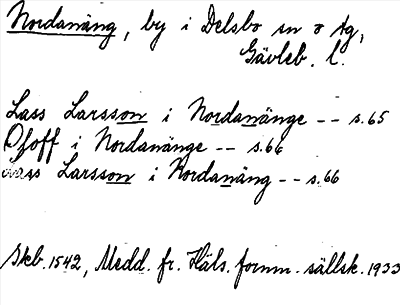 Nordanäng, by i Delsbo sn o tg,
Gävleb. l.
Lass Larsson i Nordanänge -- s. 65
Ofoff i Nordanänge -- s. 66
Lass Larsson i Nordanäng -- s. 66
Skb. 1542, Medd. fr. Häls. fornm. sällsk. 1933